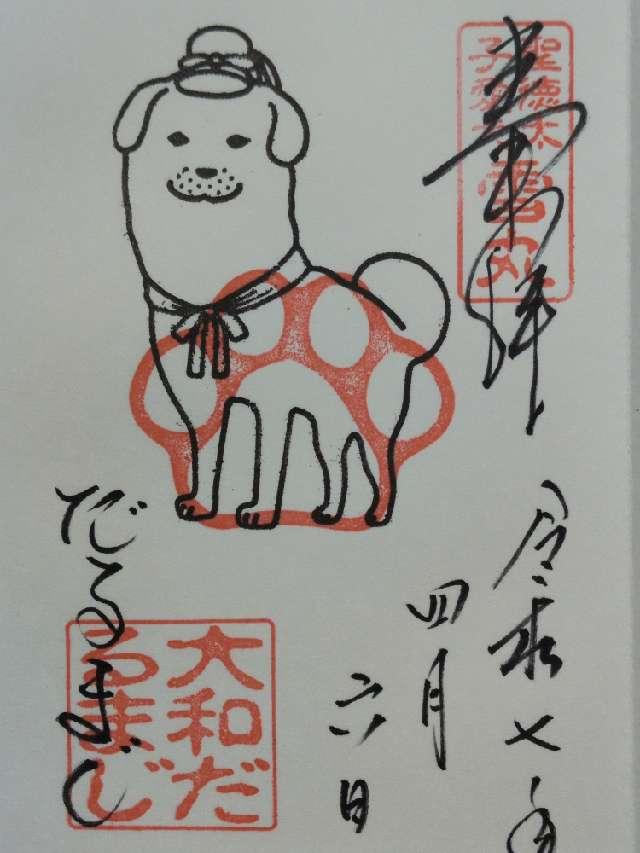 奉拝
聖徳太
子愛犬
雪丸
令和七年
四月
六日
だるまじ
大和だ
るまじ